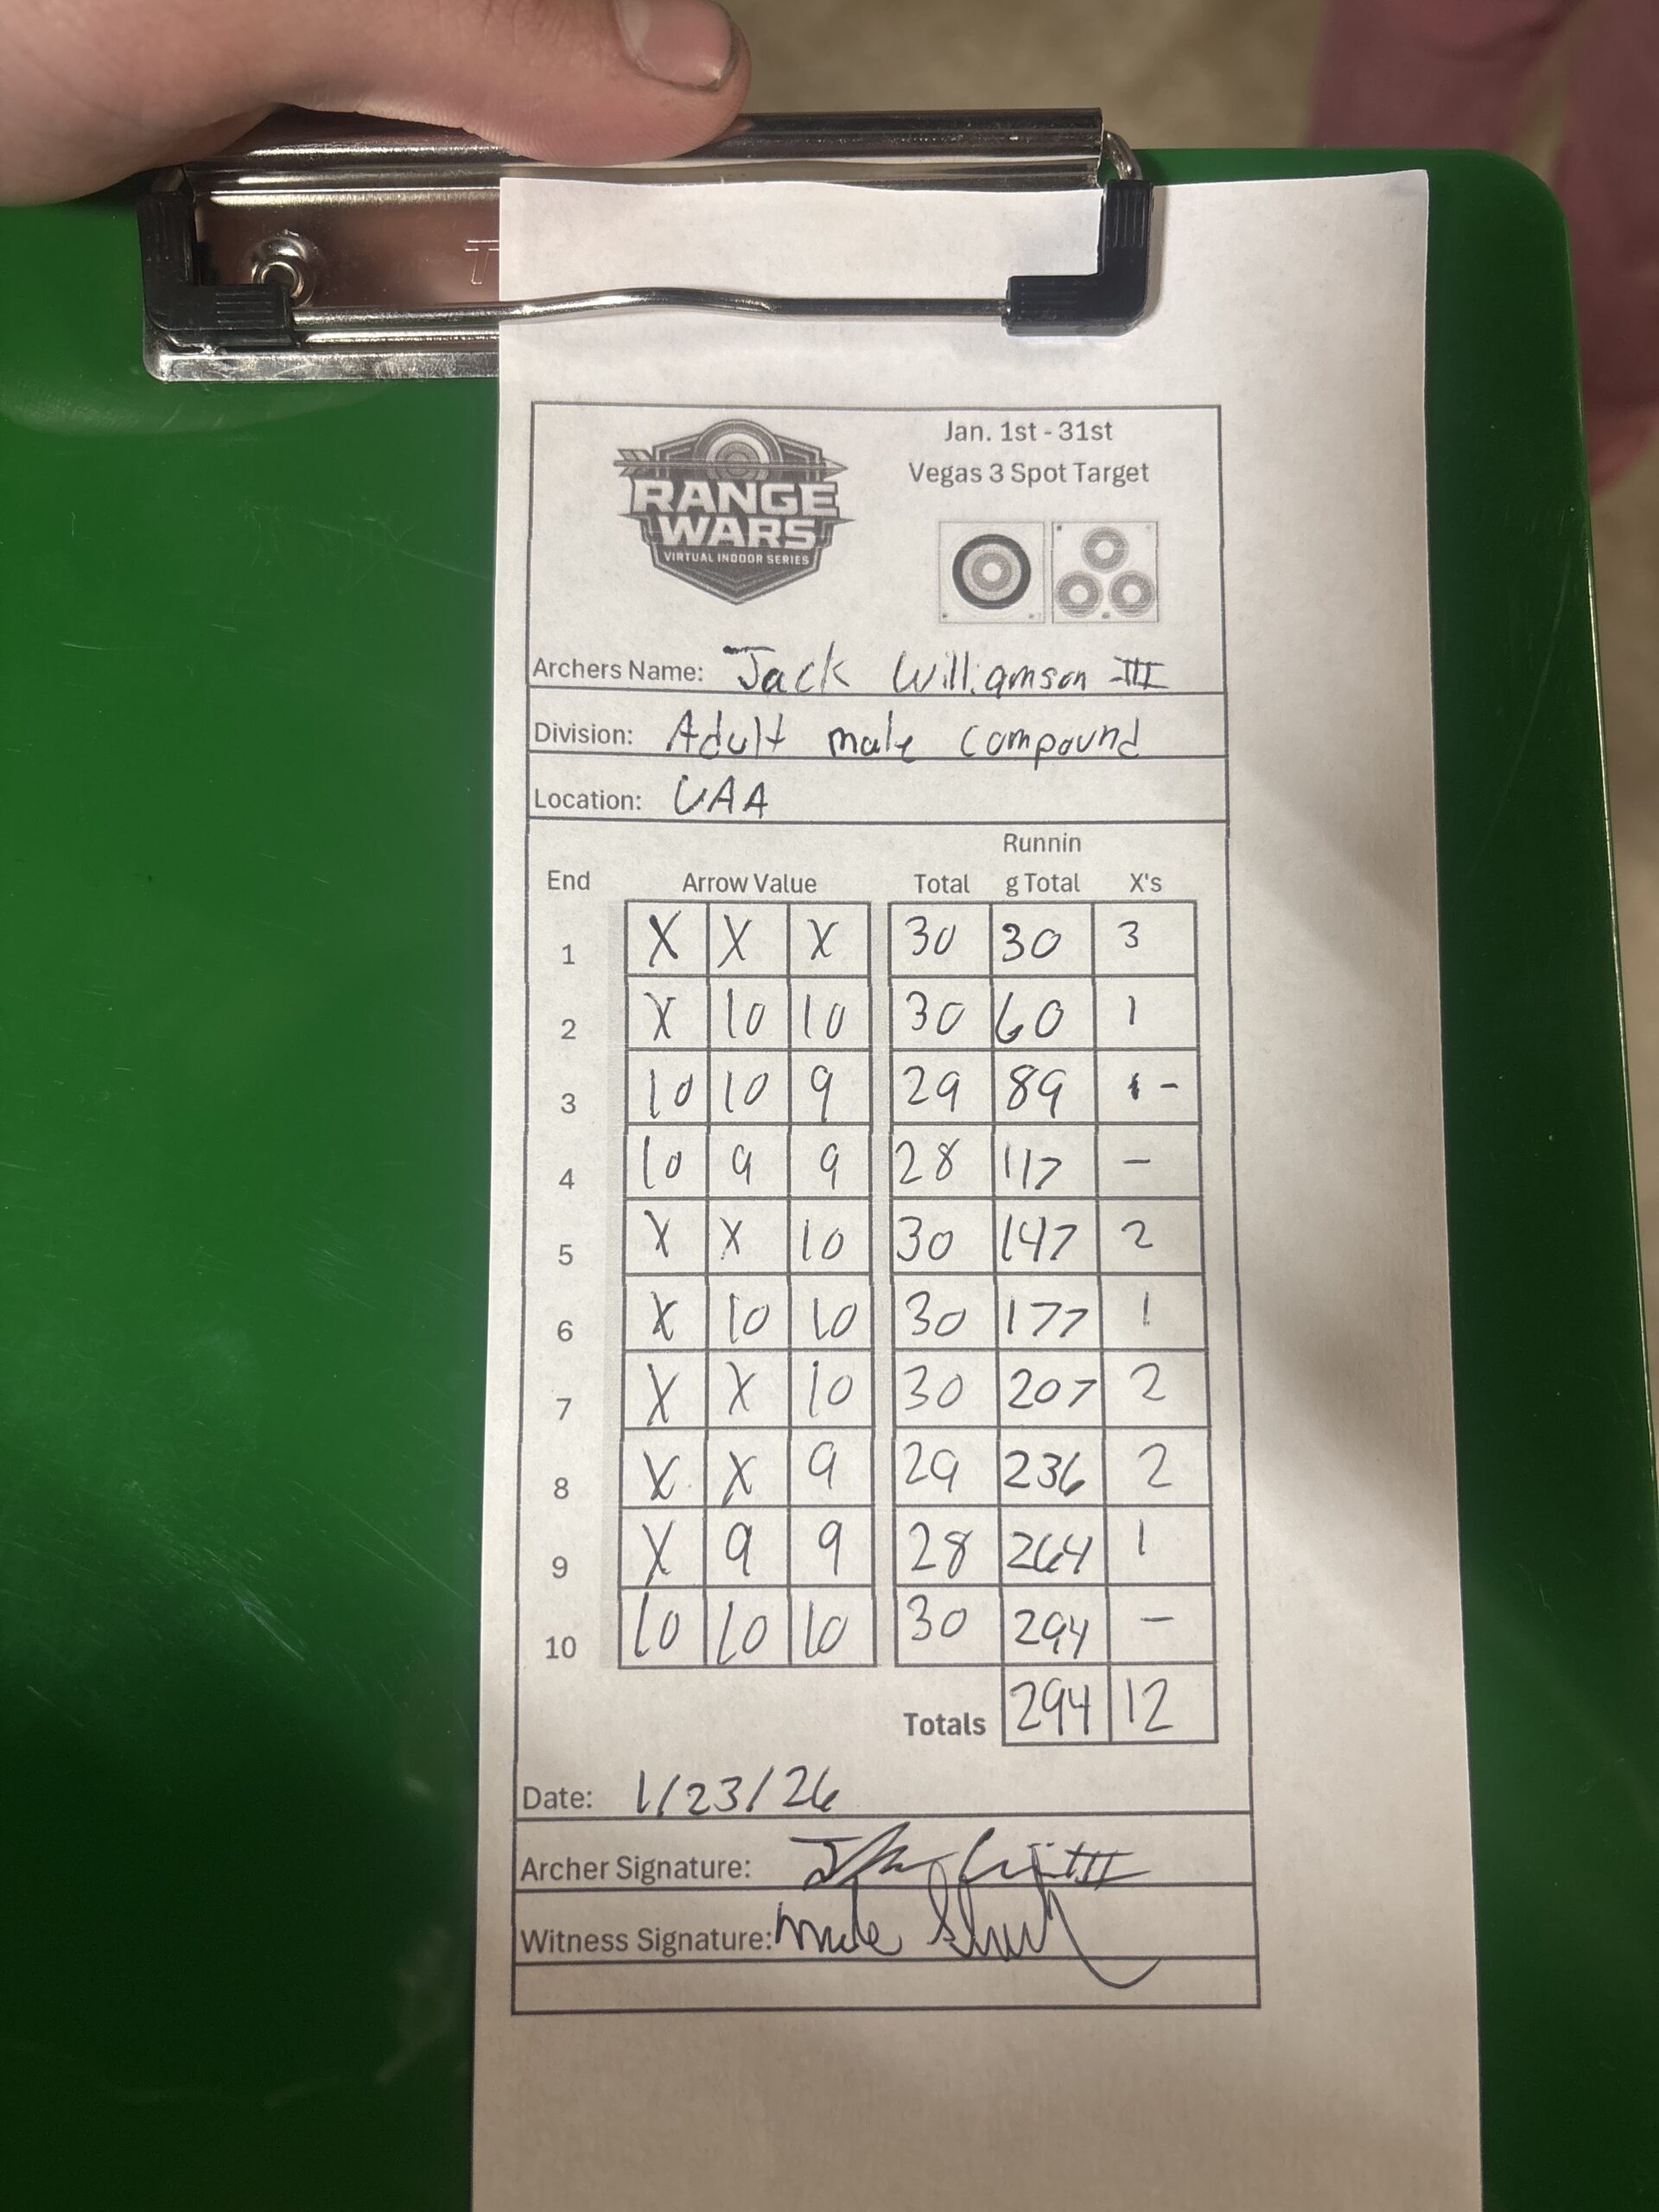 RANGE
WARS
VIRTUAL INDOOR SERIES
Jan. 1st - 31st
Vegas 3 Spot Target
Archers Name: Jack Williamson III
Division: Adult male compound
Location: UAA
Runnin
End Arrow Value Total g Total X's
1 X X X 30 30 3
2 X 10 10 30 60 1
3 10 10 9 29 89 -
4 10 9 9 28 117 -
5 X X 10 30 147 2
6 X 10 10 30 177 1
7 X X 10 30 207 2
8 X X 9 29 236 2
9 X 9 9 28 264 1
10 10 10 10 30 294 -
Totals 294 12
Date: 1/23/26
Archer Signature:
Witness Signature: